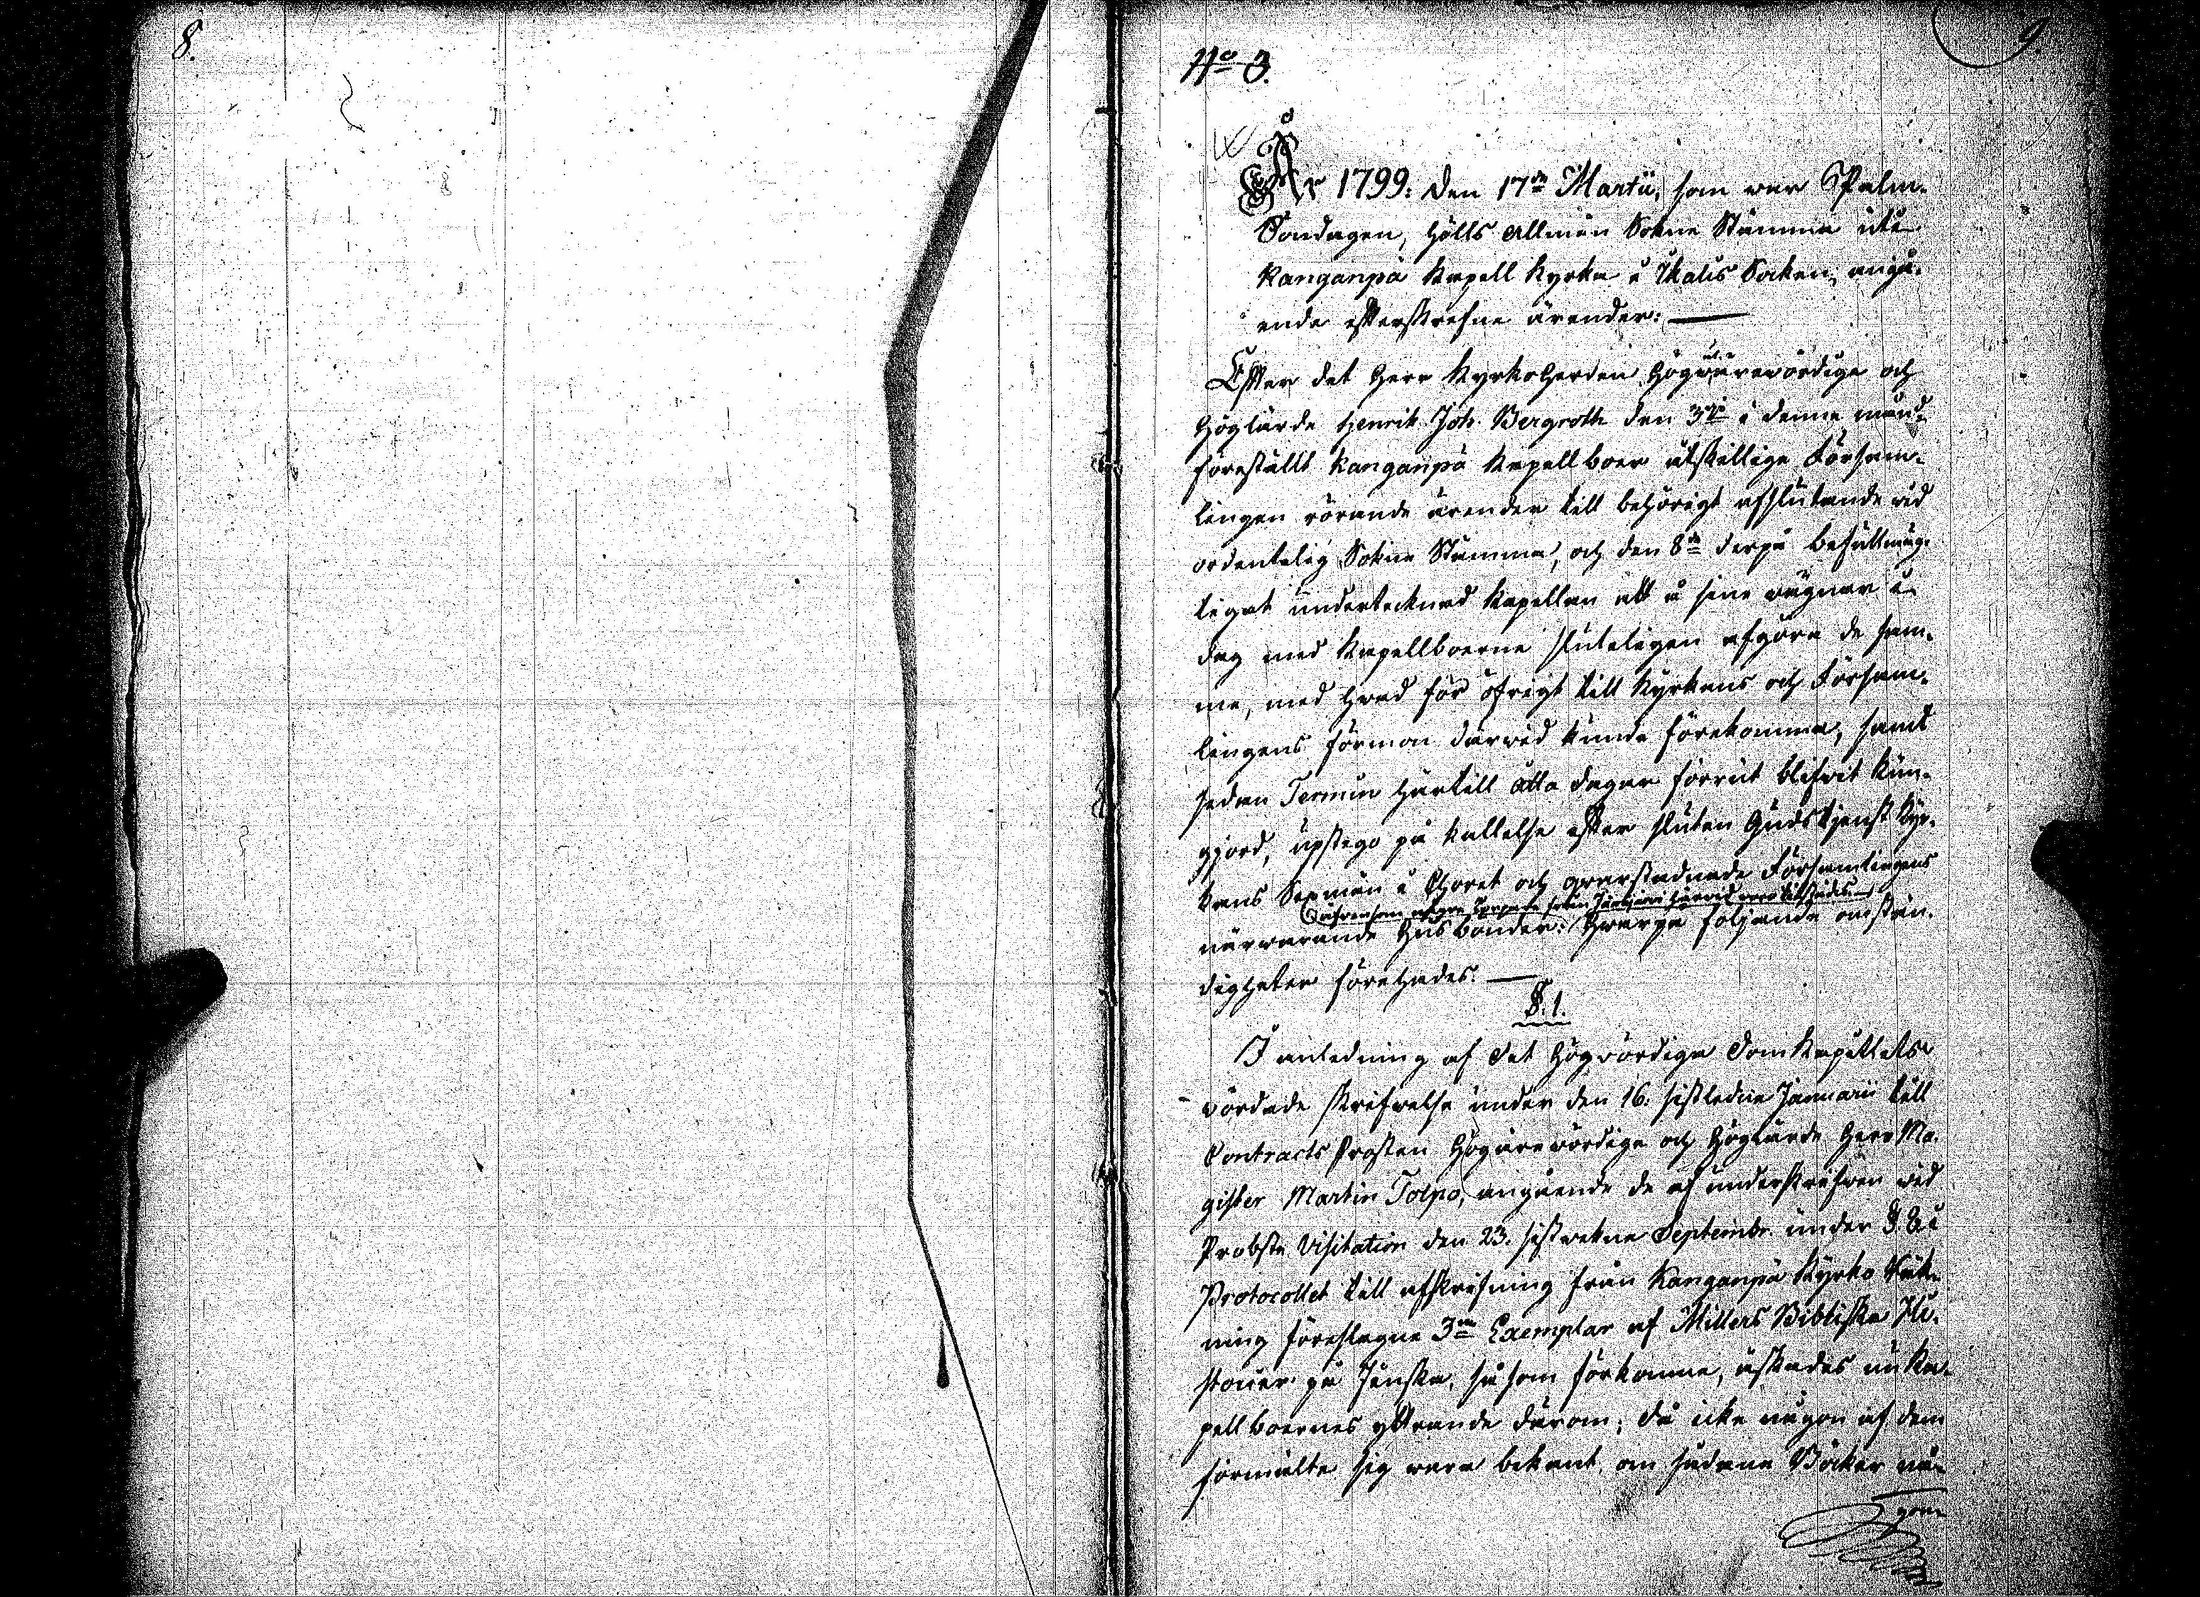 8.
9.
No 3.
År 1799: den 17de Martii, som war Palm-
Söndagen, hölls Allmän Sokne Stämma uti
Kanganpä Kapell Kyrka i Ikalis Socken, angå-
ende efterskrefne ärender:
Efter det Herr Kyrkoherden Högärewördige och
Höglärde Henrik Joh. Bergroth den 3die i denne månd
föreställt Kanganpä Kapellboer åtskillige Församl-
lingen rörande ärender till behörigt afslutande wid
ordentelig Sokne Stämma, och den 8de derpå befullmäg-
tigat undertecknad Kapellan att å sine wägnar i
dag med Kapellboerne sluteligen afgöra de sam-
me, med hwad för öfrigt till Kyrkans och Försam-
lingens förmon därwid kunde förekomma, samt
sedan Termin härtill åtta dagar förrut blifwit kun-
gjord, upstego på kallelse efter sluten Gudstjenst Kyr-
kans Sexmän i Choret och qwarstadnade Församlingens
äfwensom någre Torpare från härwid woro tilstädes
närwarande Husbönder: Hwarpå följande omstän-
digheter förehades.
§. 1.
I anledning af det Högwördiga DomKapitlets
wördade skrifwelse under den 16. sistledne Januarii till
Contracts Prosten Högärewördige och Höglärde Herr Ma-
gister Martin Tolpo, angående de af underskrefwen wid
Probste Visitation den 23. sistwekne Septembr. under §. 8 i
Protocollet till afskrifning från Kanganpä Kyrko Räk-
ning föreslagne 3ne Exemplar af Millers Bibliska Hi-
storier på finska, såsom förkomne, äskades nu Ka-
pellboernes yttrande därom; då icke någon af dem
förmälte sig wara bekant, om sådana Böcker nå-
gon-